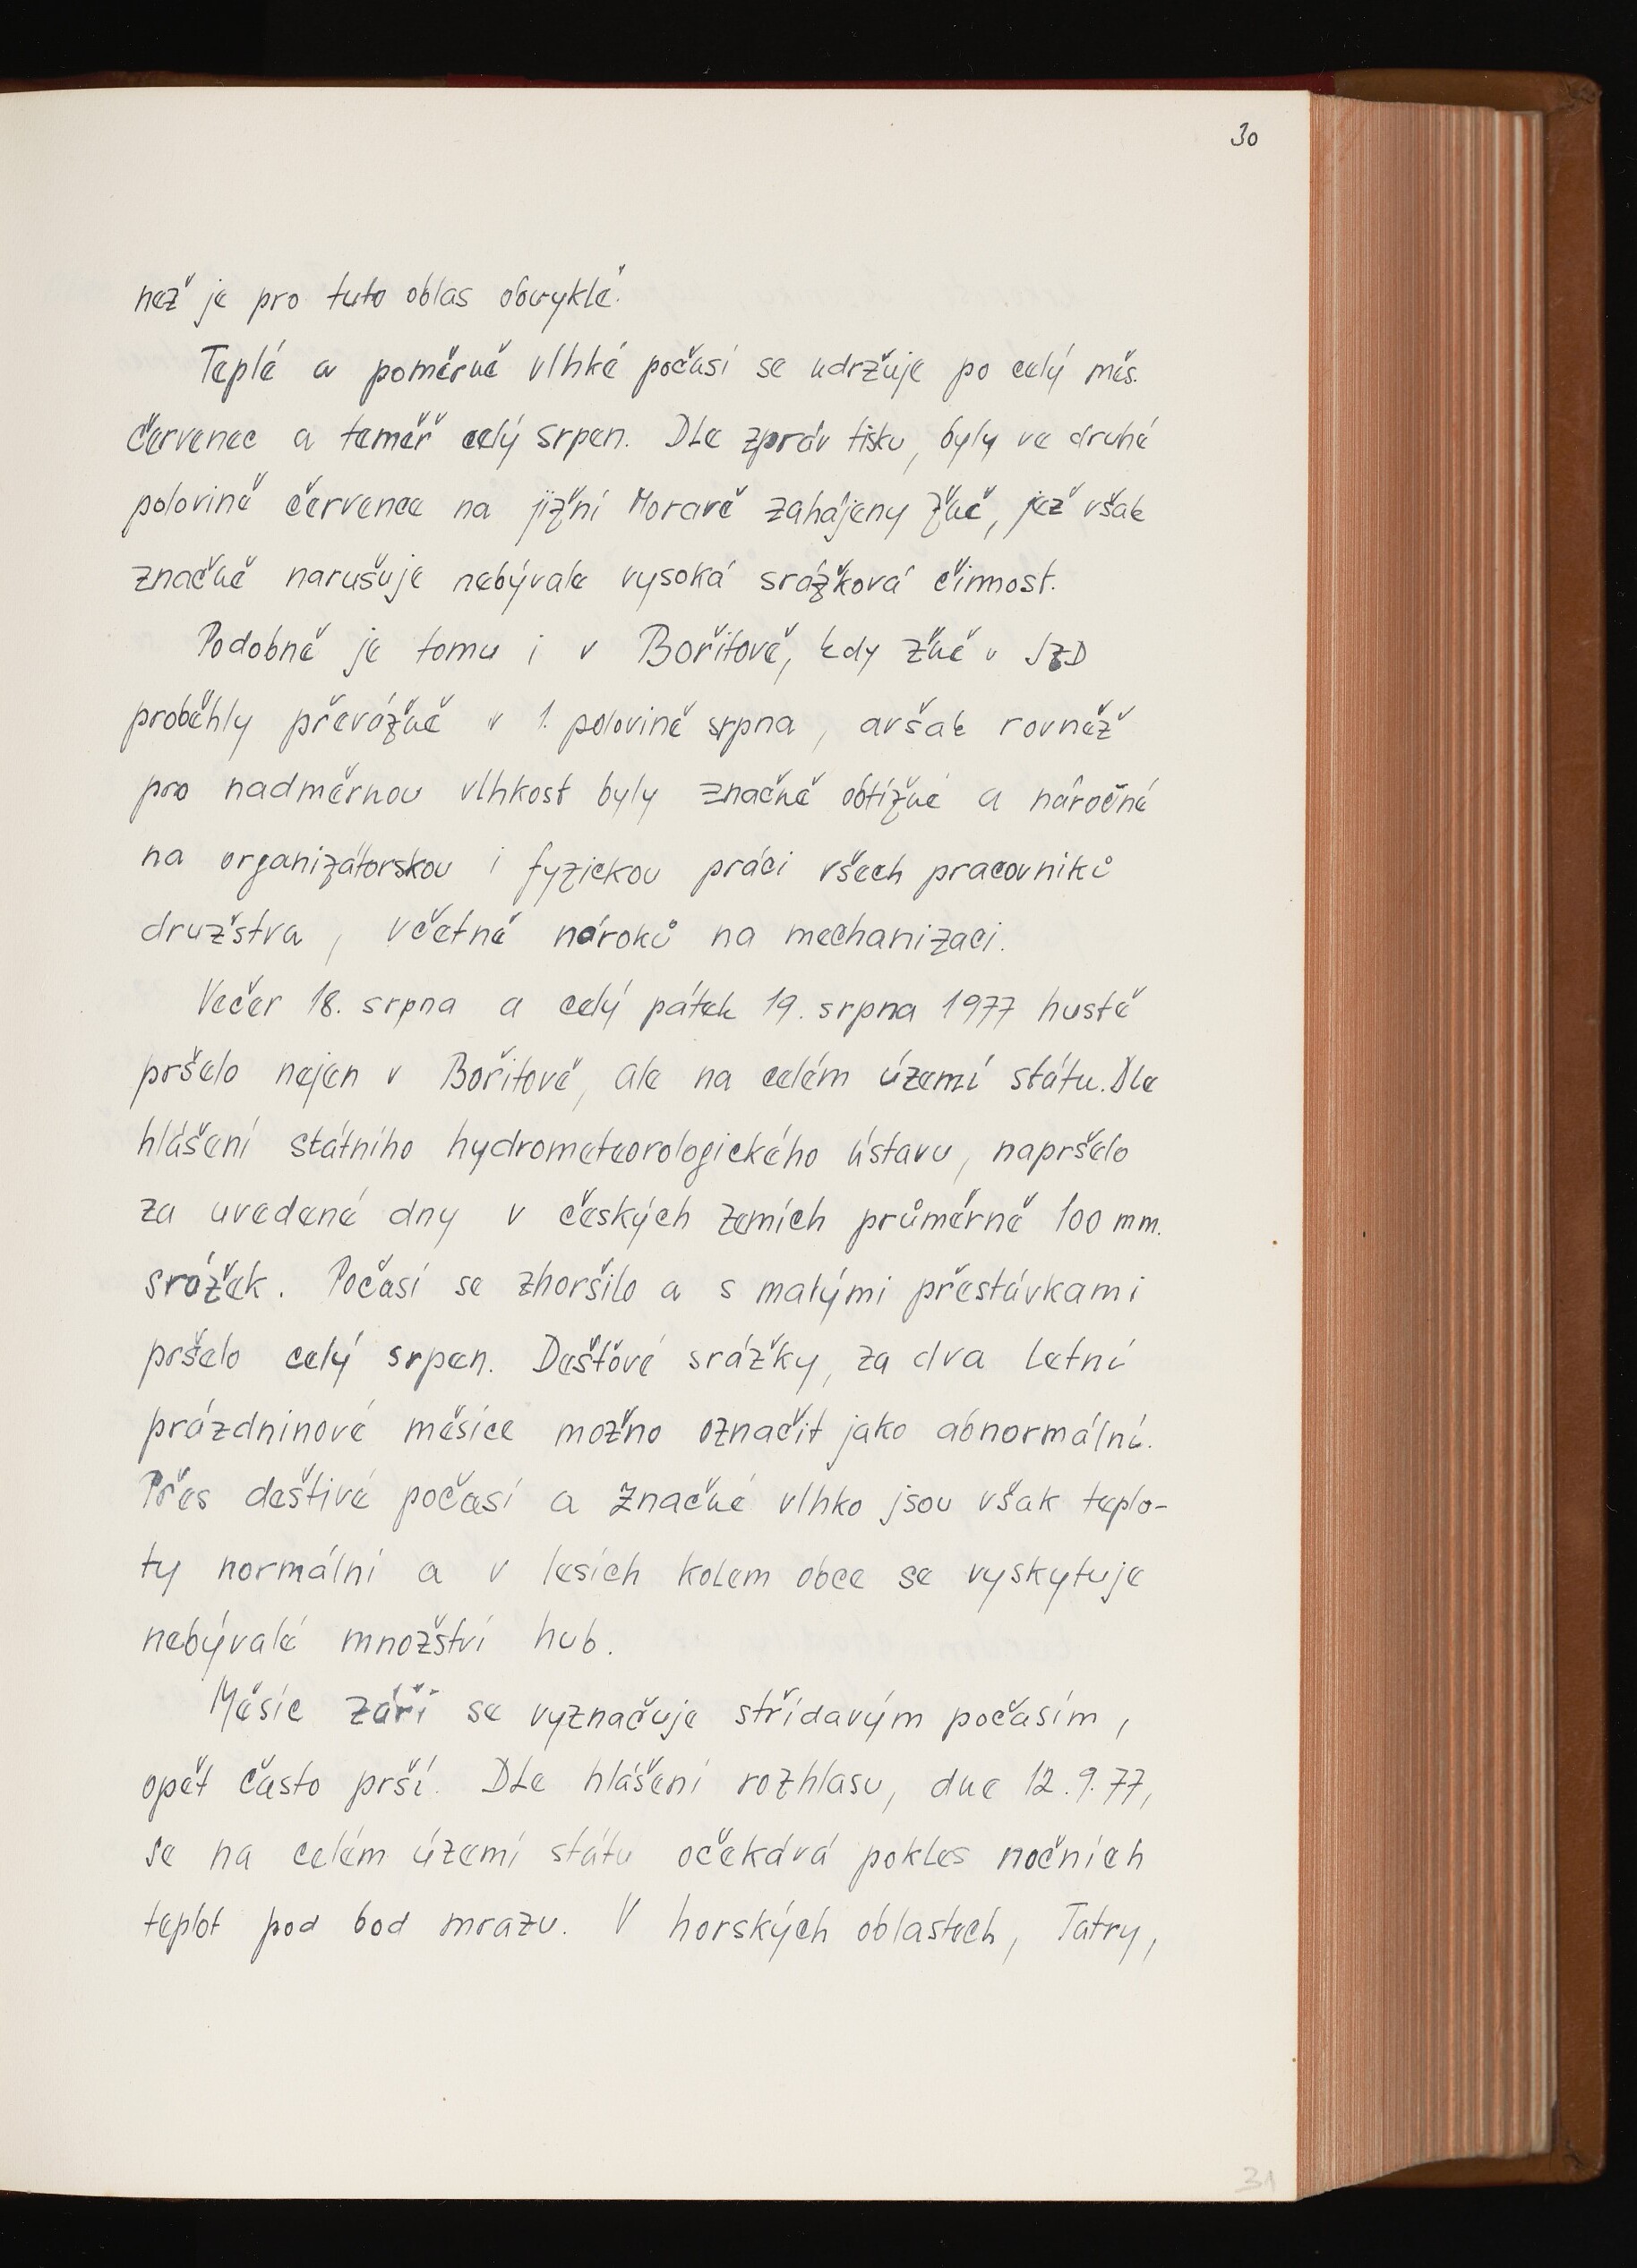 30
než je pro tuto oblas obvyklé.
Teplé a poměrně vlhké počasí se udržuje po celý měs.
červenec a teměř celý srpen. Dle zpráv tisku, byly ve druhé
polovině července na jižní Moravě zahájeny žně, jež však
značně narušuje nebývale vysoká srážková činnost.
Podobně je tomu i v Bořitově, kdy žně v JZD
proběhly převážně v 1. polovině srpna, avšak rovněž
pro nadměrnou vlhkost byly značně obtížné a náročné
na organizátorskou i fyzickou práci všech pracovníků
družstva, včetně nároků na mechanizaci.
Večer 18. srpna a celý pátek 19. srpna 1977 hustě
pršelo nejen v Bořitově, ale na celém území státu. Dle
hlášení státního hydrometeorologického ústavu, napršelo
za uvedené dny v českých zemích průměrně 100 mm.
srážek. Počasí se zhoršilo a s malými přestávkami
pršelo celý srpen. Dešťové srážky, za dva letní
prázdninové měsíce možno označit jako abnormální.
Přes deštivé počasí a značné vlhko jsou však teplo-
ty normální a v lesích kolem obce se vyskytuje
nebývalé množství hub.
Měsíc září se vyznačuje střídavým počasím,
opět často prší. Dle hlášení rozhlasu, dne 12.9.77,
se na celém území státu očekává pokles nočních
teplot pod bod mrazu. V horských oblastech, Tatry,
31